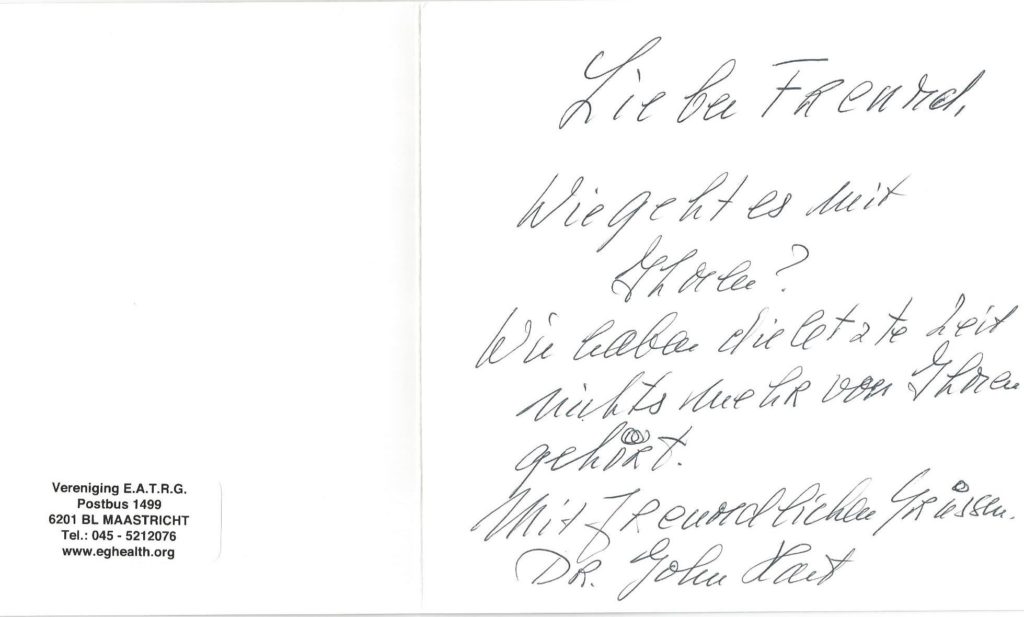 Vereniging E.A.T.R.G.
Postbus 1499
6201 BL MAASTRICHT
Tel.: 045 - 5212076
www.eghealth.org
Lieber Freund,
Wie geht es mit
Ihnen?
Wir haben die letzte Zeit
nichts mehr von Ihnen
gehört.
Mit freundlichen Grüssen.
DR. John Hart